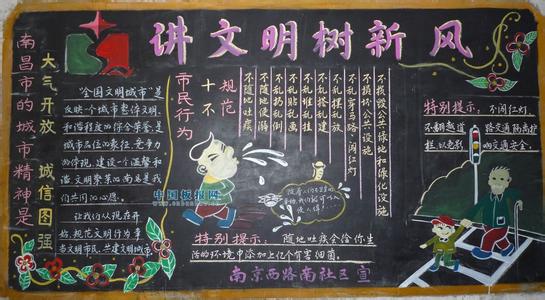 讲文明树新风
南昌市的城市精神是
大气开放 诚信图强
"全国文明城市"是
反映一个城市整体文明
和谐程度的综合荣誉,是
城市品位的象征,竞争
力的体现,建设一个温馨和
谐、文明繁荣的南昌是我
们共同的心愿。
让我们从现在开
始,规范文明行为,争
当文明市民,共建文明城市。
市民行为
十不
规范
不随地吐痰
不随地便溺
不乱扔乱倒
不乱贴乱画
不乱堆乱挂
不乱搭乱建
不乱摆乱放
不乱穿马路、闯红灯
不损坏公共设施
不毁损公共绿地和绿化设施
中国板报网
特别提示: 随地吐痰会给你生
活的环境中添加上亿个有害细菌。
特别提示: 不闯红灯,
不翻越道路交通防离护
栏,以免影响交通安全。
南京西路南社区宣